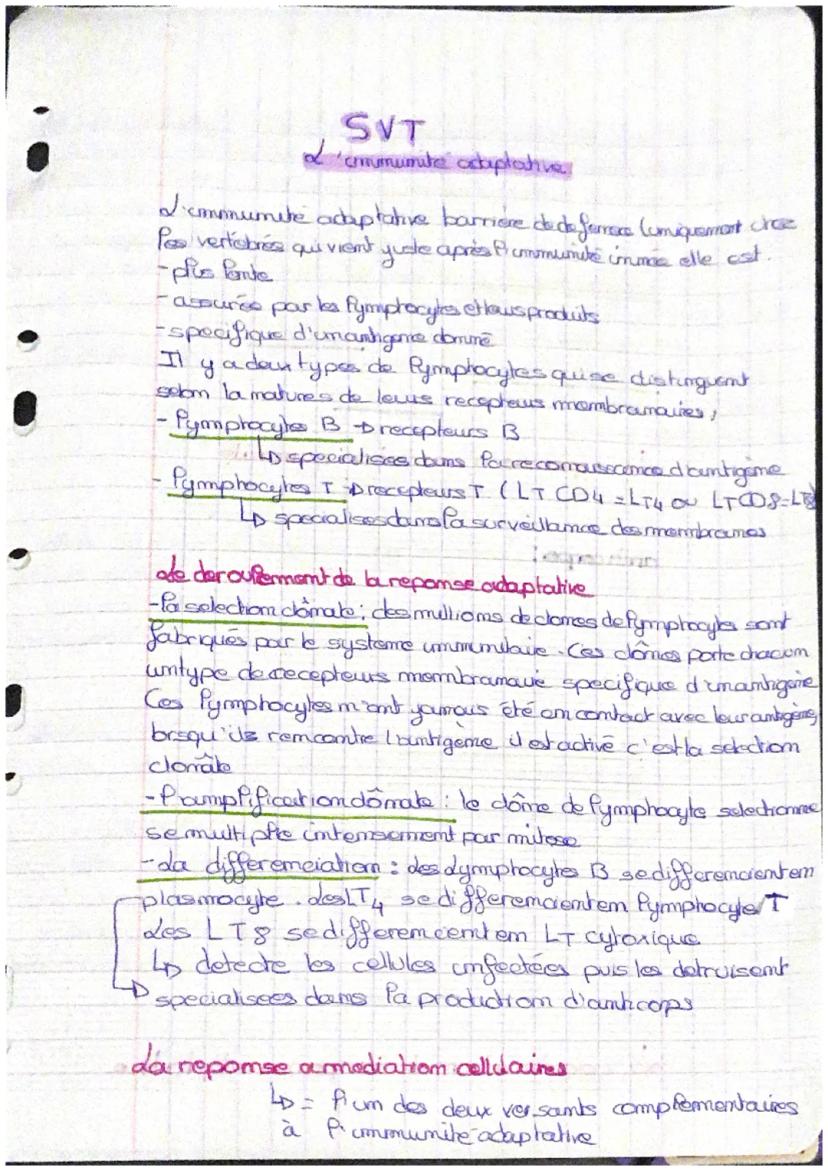 SVT
L'immunité adaptative
L'immunité adaptative barriere de defense (uniquement chez
les vertébrés qui vient juste après l'immunité innée elle est.
- plus lente
- assurée par les lymphocytes et leurs produits
- specifique d'un antigene donné
Il y a deux types de lymphocytes qui se distinguent
selon la natures de leurs recepteurs membranaires ;
- lymphocytes B → recepteurs B
↳ specialisées dans la reconnaissance d'antigène
- lymphocytes T → recepteurs T (LT CD4 = LT4 ou LTCD8 = LT8
↳ specialises dans la surveillance des membranes
Le deroulement de la reponse adaptative
- la selection clônale : des millions de clones de lymphocytes sont
fabriqués par le systeme immunitaire. Ces clônes porte chacun
un type de recepteurs membranaire specifique d'un antigène
Ces lymphocytes n'ont jamais été en contact avec leur antigène,
lorsqu'ils rencontre l'antigène il est activé c'est la selection
clonâle
- l'amplification clônale : le clône de lymphocyte selectionne
se multiplie intensement par mitose
- La differenciation : des Lymphocytes B se differencient en
plasmocyte. des LT4 se differencient en lymphocyte T
Les LT8 se differencient en LT cytoxique
↳ detecte les cellules infectées puis les detruisent
↳ specialisees dans la production d'anticorps
La reponse a mediation cellulaires
↳ = l'un des deux versants complementaires
à l'immunité adaptative